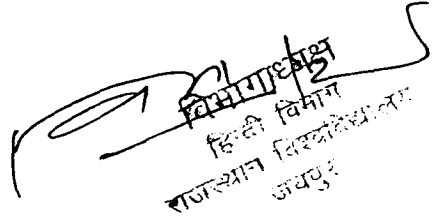 विभागाध्यक्ष
हिन्दी विभाग
राजस्थान विश्वविद्यालय
जयपुर